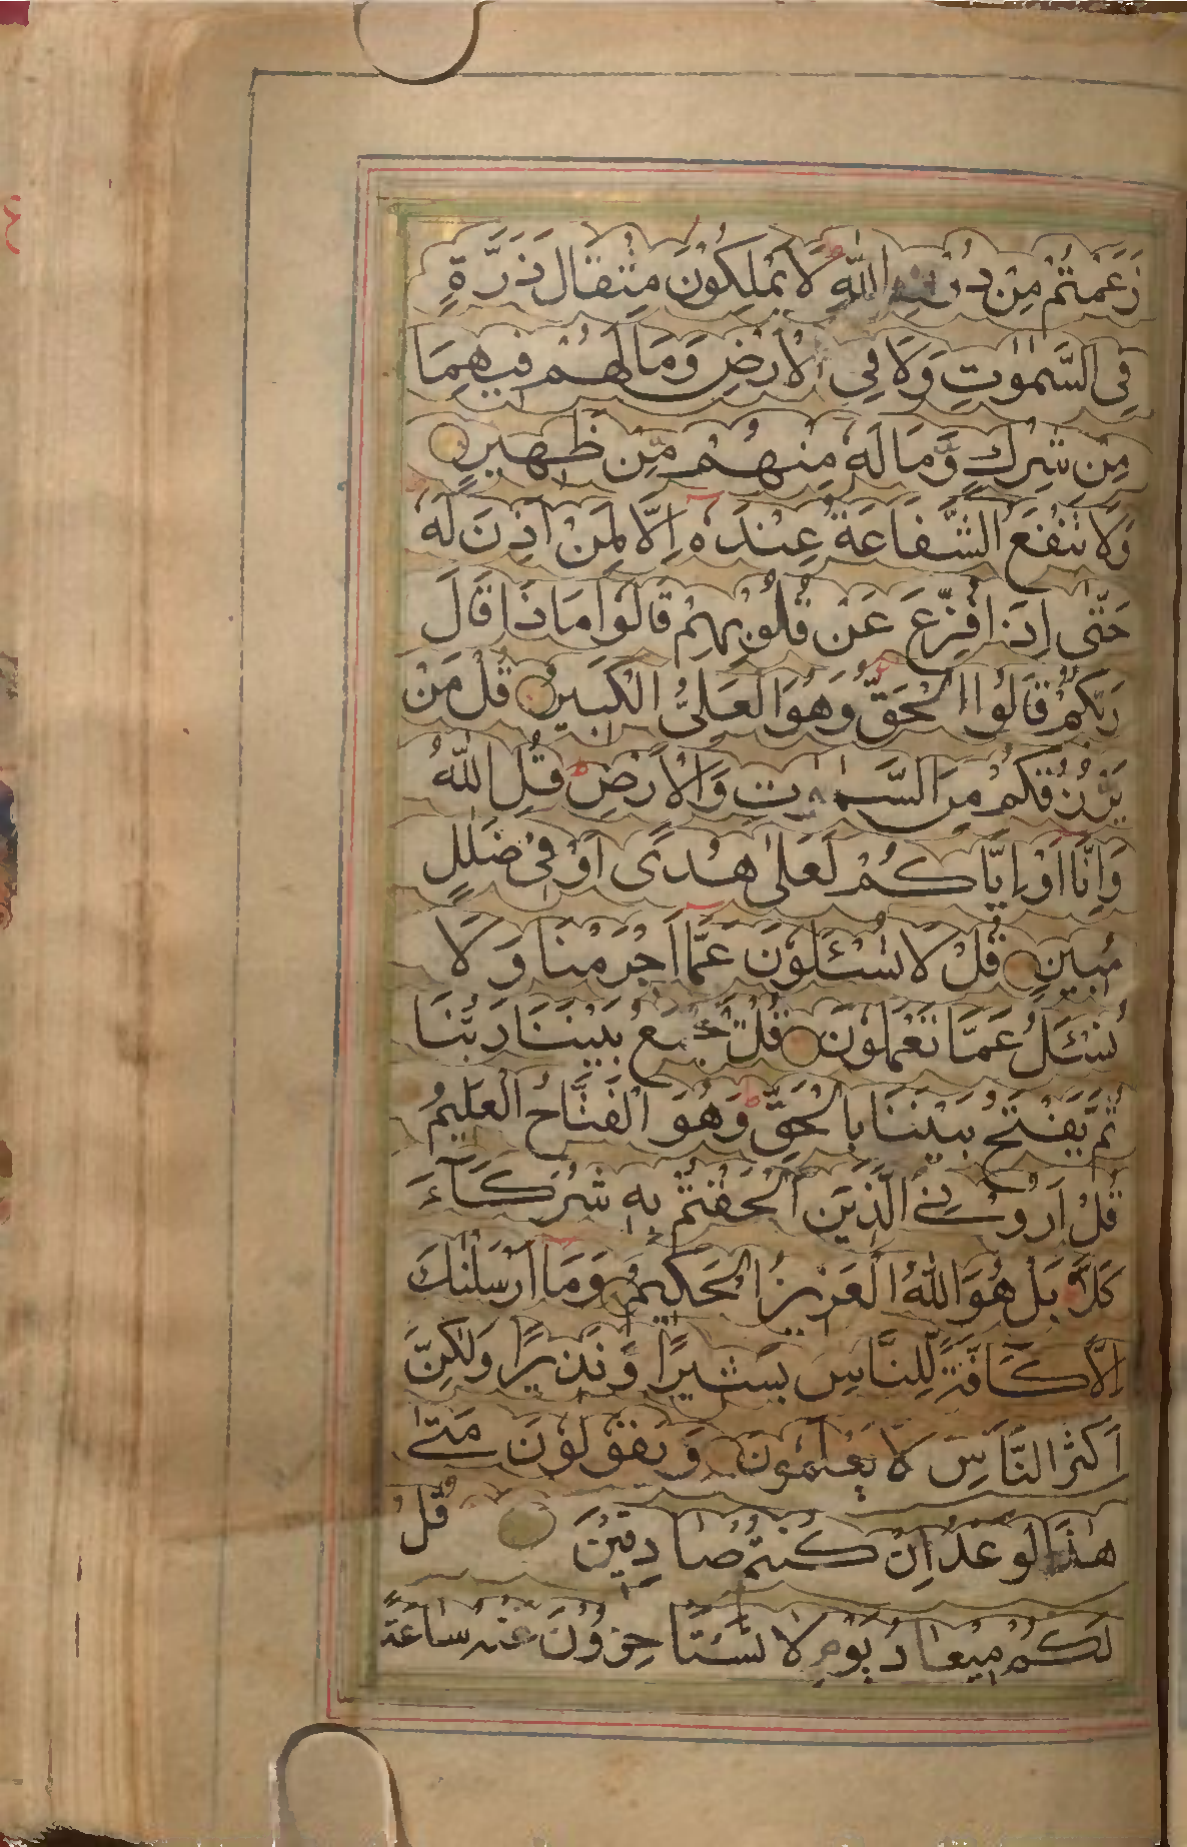 زَعَمْتُمْ مِنْ دُونِ اللّٰهِ لَا يَمْلِكُوْنَ مِثْقَالَ ذَرَّةٍ
فِى السَّمٰوٰتِ وَلَا فِى الْاَرْضِ وَمَا لَهُمْ فِيهِمَا
مِنْ شِرْكٍ وَّمَا لَهٗ مِنْهُمْ مِّنْ ظَهِيرٍ
وَلَا تَنْفَعُ الشَّفَاعَةُ عِنْدَهٗ اِلَّا لِمَنْ اَذِنَ لَهٗ
حَتّٰى اِذَا فُزِّعَ عَنْ قُلُوْبِهِمْ قَالُوْا مَاذَا قَالَ
رَبُّكُمْ قَالُوْا الْحَقَّ وَهُوَ الْعَلِىُّ الْكَبِيرُ قُلْ مَنْ
يَرْزُقُكُمْ مِنَ السَّمٰوٰتِ وَالْاَرْضِ قُلِ اللّٰهُ
وَاِنَّا اَوْ اِيَّاكُمْ لَعَلٰى هُدًى اَوْ فِىْ ضَلٰلٍ
مُبِينٍ قُلْ لَا تُسْـَٔلُوْنَ عَمَّا اَجْرَمْنَا وَلَا
نُسْـَٔلُ عَمَّا تَعْمَلُوْنَ قُلْ يَجْمَعُ بَيْنَنَا رَبُّنَا
ثُمَّ يَفْتَحُ بَيْنَنَا بِالْحَقِّ وَهُوَ الْفَتَّاحُ الْعَلِيمُ
قُلْ اَرُوْنِىَ الَّذِيْنَ اَلْحَقْتُمْ بِهٖ شُرَكَآءَ
كَلَّا بَلْ هُوَ اللّٰهُ الْعَزِيْزُ الْحَكِيمُ وَمَا اَرْسَلْنٰكَ
اِلَّا كَآفَّةً لِّلنَّاسِ بَشِيْرًا وَّنَذِيْرًا وَلٰكِنَّ
اَكْثَرَ النَّاسِ لَا يَعْلَمُونَ وَيَقُوْلُوْنَ مَتٰى
هٰذَا الْوَعْدُ اِنْ كُنْتُمْ صَادِقِيْنَ قُلْ
لَكُمْ مِيْعَادُ يَوْمٍ لَا تَسْتَاْخِرُوْنَ عَنْهُ سَاعَةً